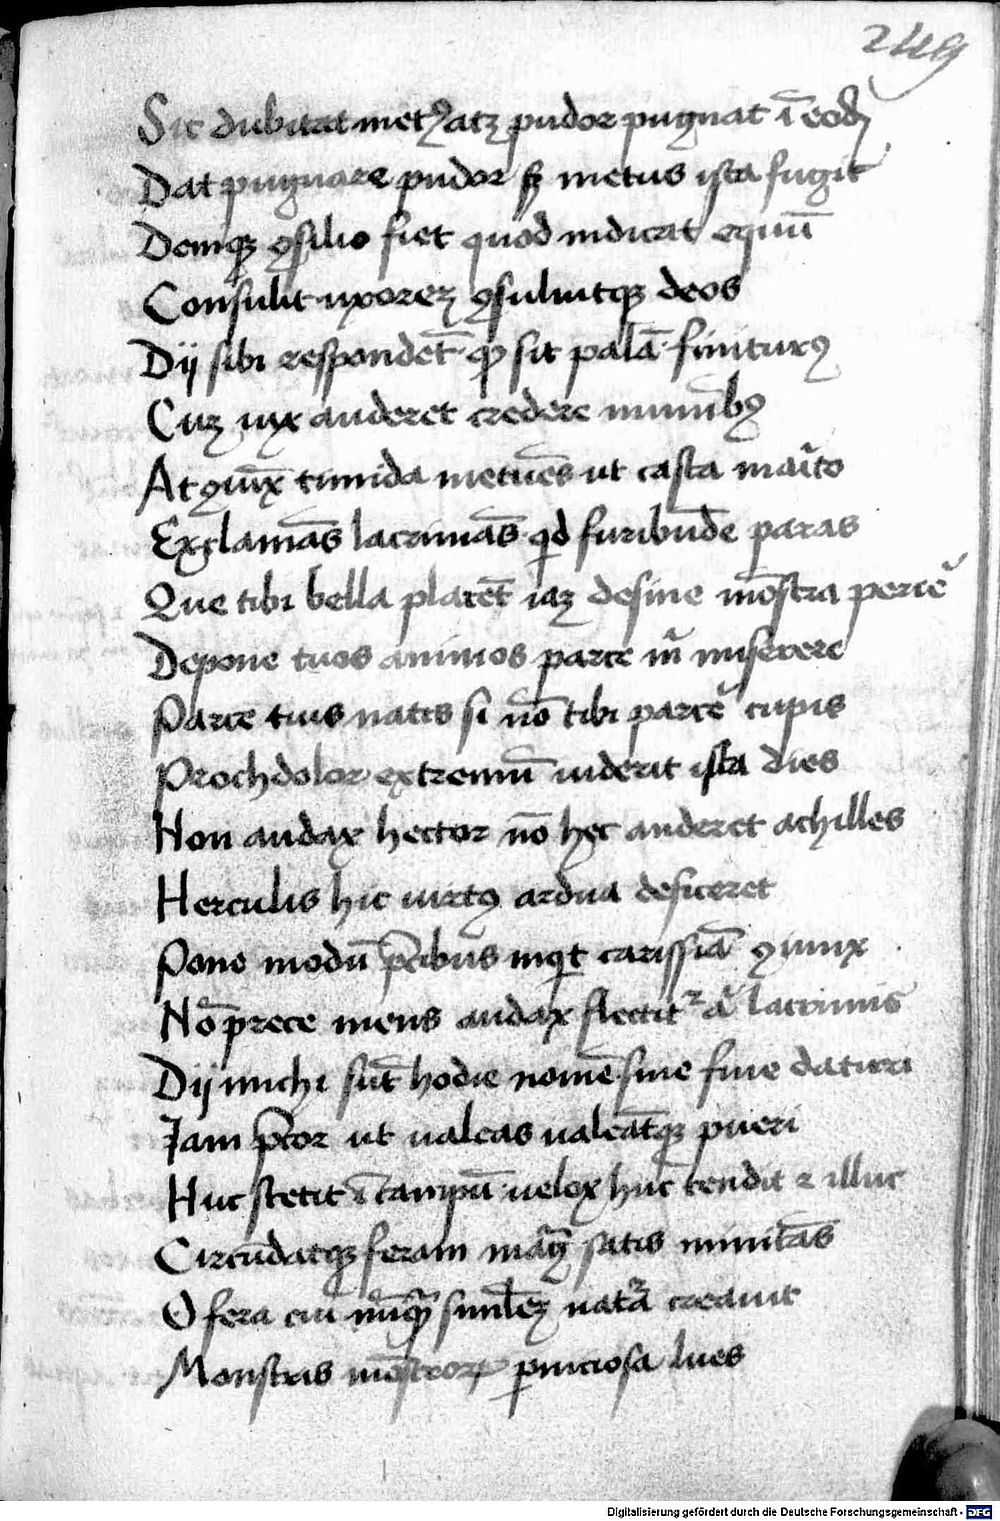 249
Sic dubitat metꝰ atqꝫ pudor pugnat ī eodē
Dat pugnare pudor sꝫ metus ista fugit
Deniqꝫ ꝯsilio fiet quod indicat equū
Consulit uxoreꝫ ꝯsuluitqꝫ deos
Dij sibi respondēt ꝙ sit palā finiturꝰ
Cuꝫ uix auderet credere numībꝰ
At ꝯiūx timida metuēs ut casta marito
Exclamās lacrimās qid furibūde paras
Que tibi bella placēt iaꝫ desine mōstra
Depone tuos animos parce miserere
Parce tuis natis si nō tibi parcē cupis
Proch dolor extremū uiderit ista dies
Non audax hector nō hec auderet achilles
Herculis hic uirtꝰ ardua deficeret
Pone modū p̄cibus inqit carissīa ꝯiunx
Nō prece mens audax flectitᷣ lacrimis
Dij michi sūt hodie nomē sine fine daturi
Iam p̄cor ut ualeas ualeātqꝫ pueri
Huc stetit ī campū uelox huc tendit ⁊ illuc
Circūdatqꝫ feram satis minitās
O fera cui nūqꝫ simileꝫ natᷓa creauit
Monstris mōstroꝝ ꝑniciosa lues
Digitalisierung gefördert durch die Deutsche Forschungsgemeinschaft - DFG